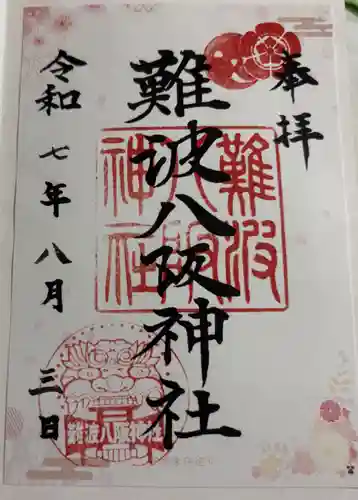 奉拝
難波八阪神社
難波八阪神社
令和七年八月三日
難波八阪神社